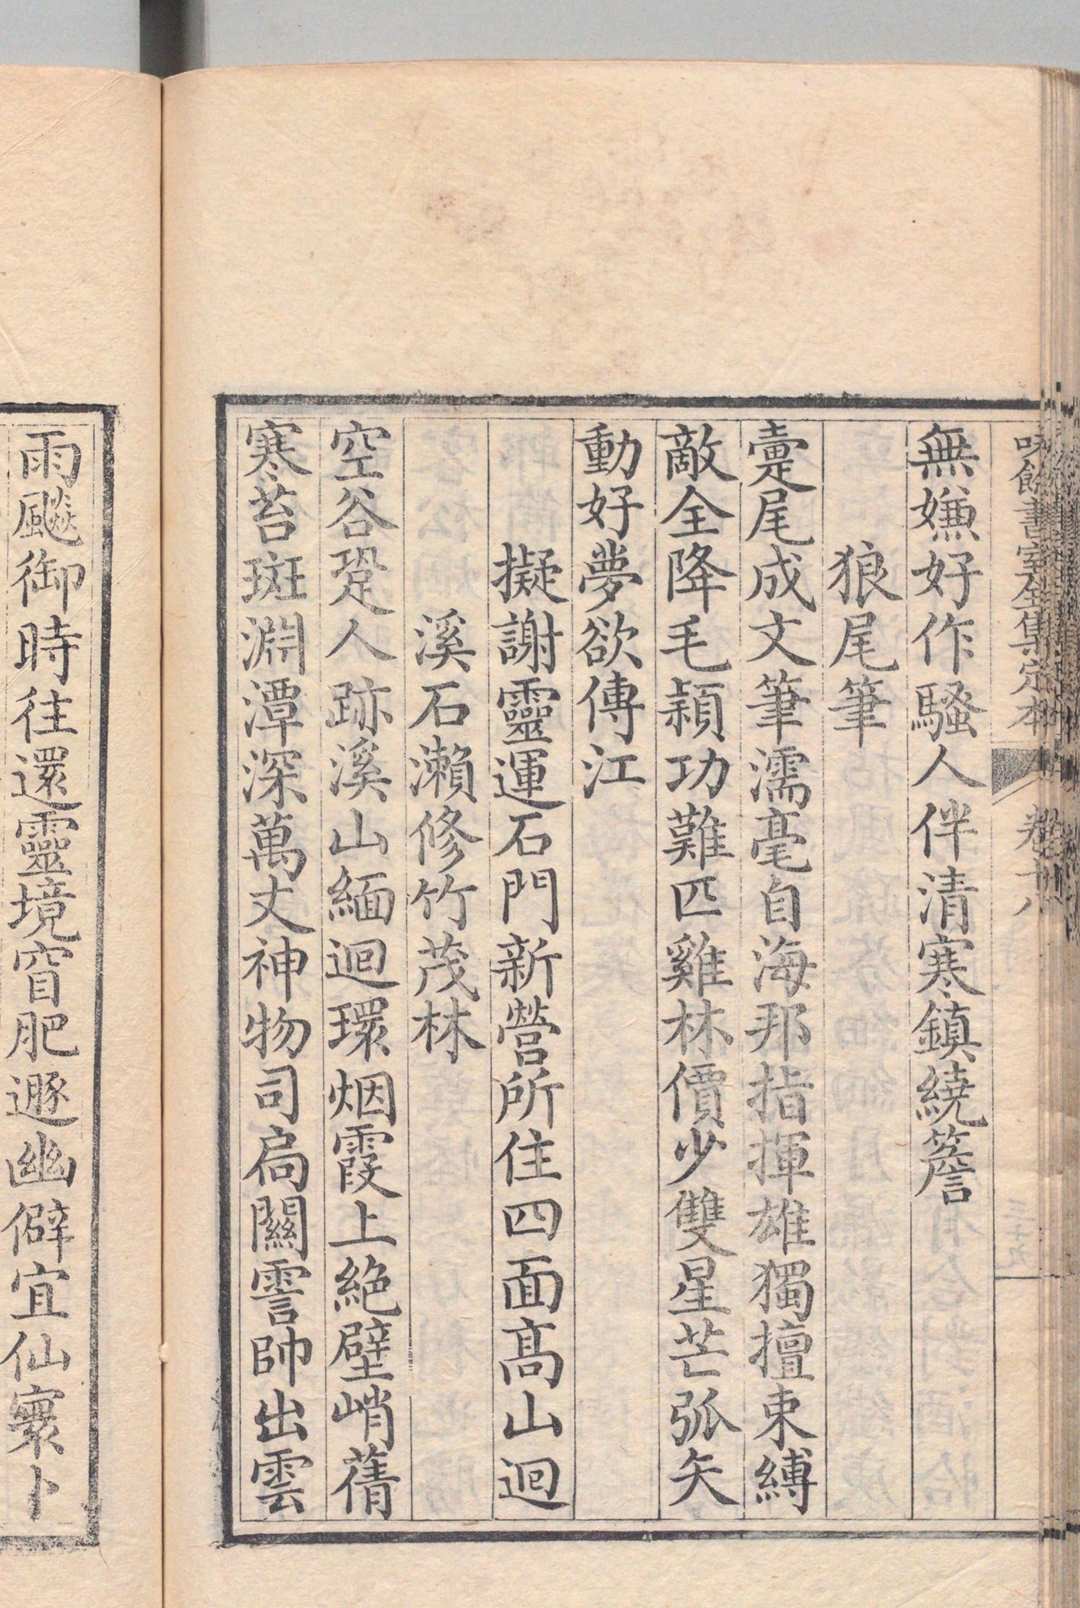 味餘書室全集定本
卷十八
三十九
無嫌好作騷人伴清寒鎮繞簷
狼尾筆
疐尾成文筆濡毫自海那指揮雄獨擅束縛
敵全降毛穎功難匹雞林價少雙星芒弧矢
動好夢欲傳江
擬謝靈運石門新營所住四面高山迴
溪石瀨修竹茂林
空谷跫人跡溪山緬迴環烟霞上絕壁峭蒨
寒苔斑淵潭深萬丈神物司扃關雲帥出雲
雨飈御時往還靈境窅肥遯幽僻宜仙寰卜